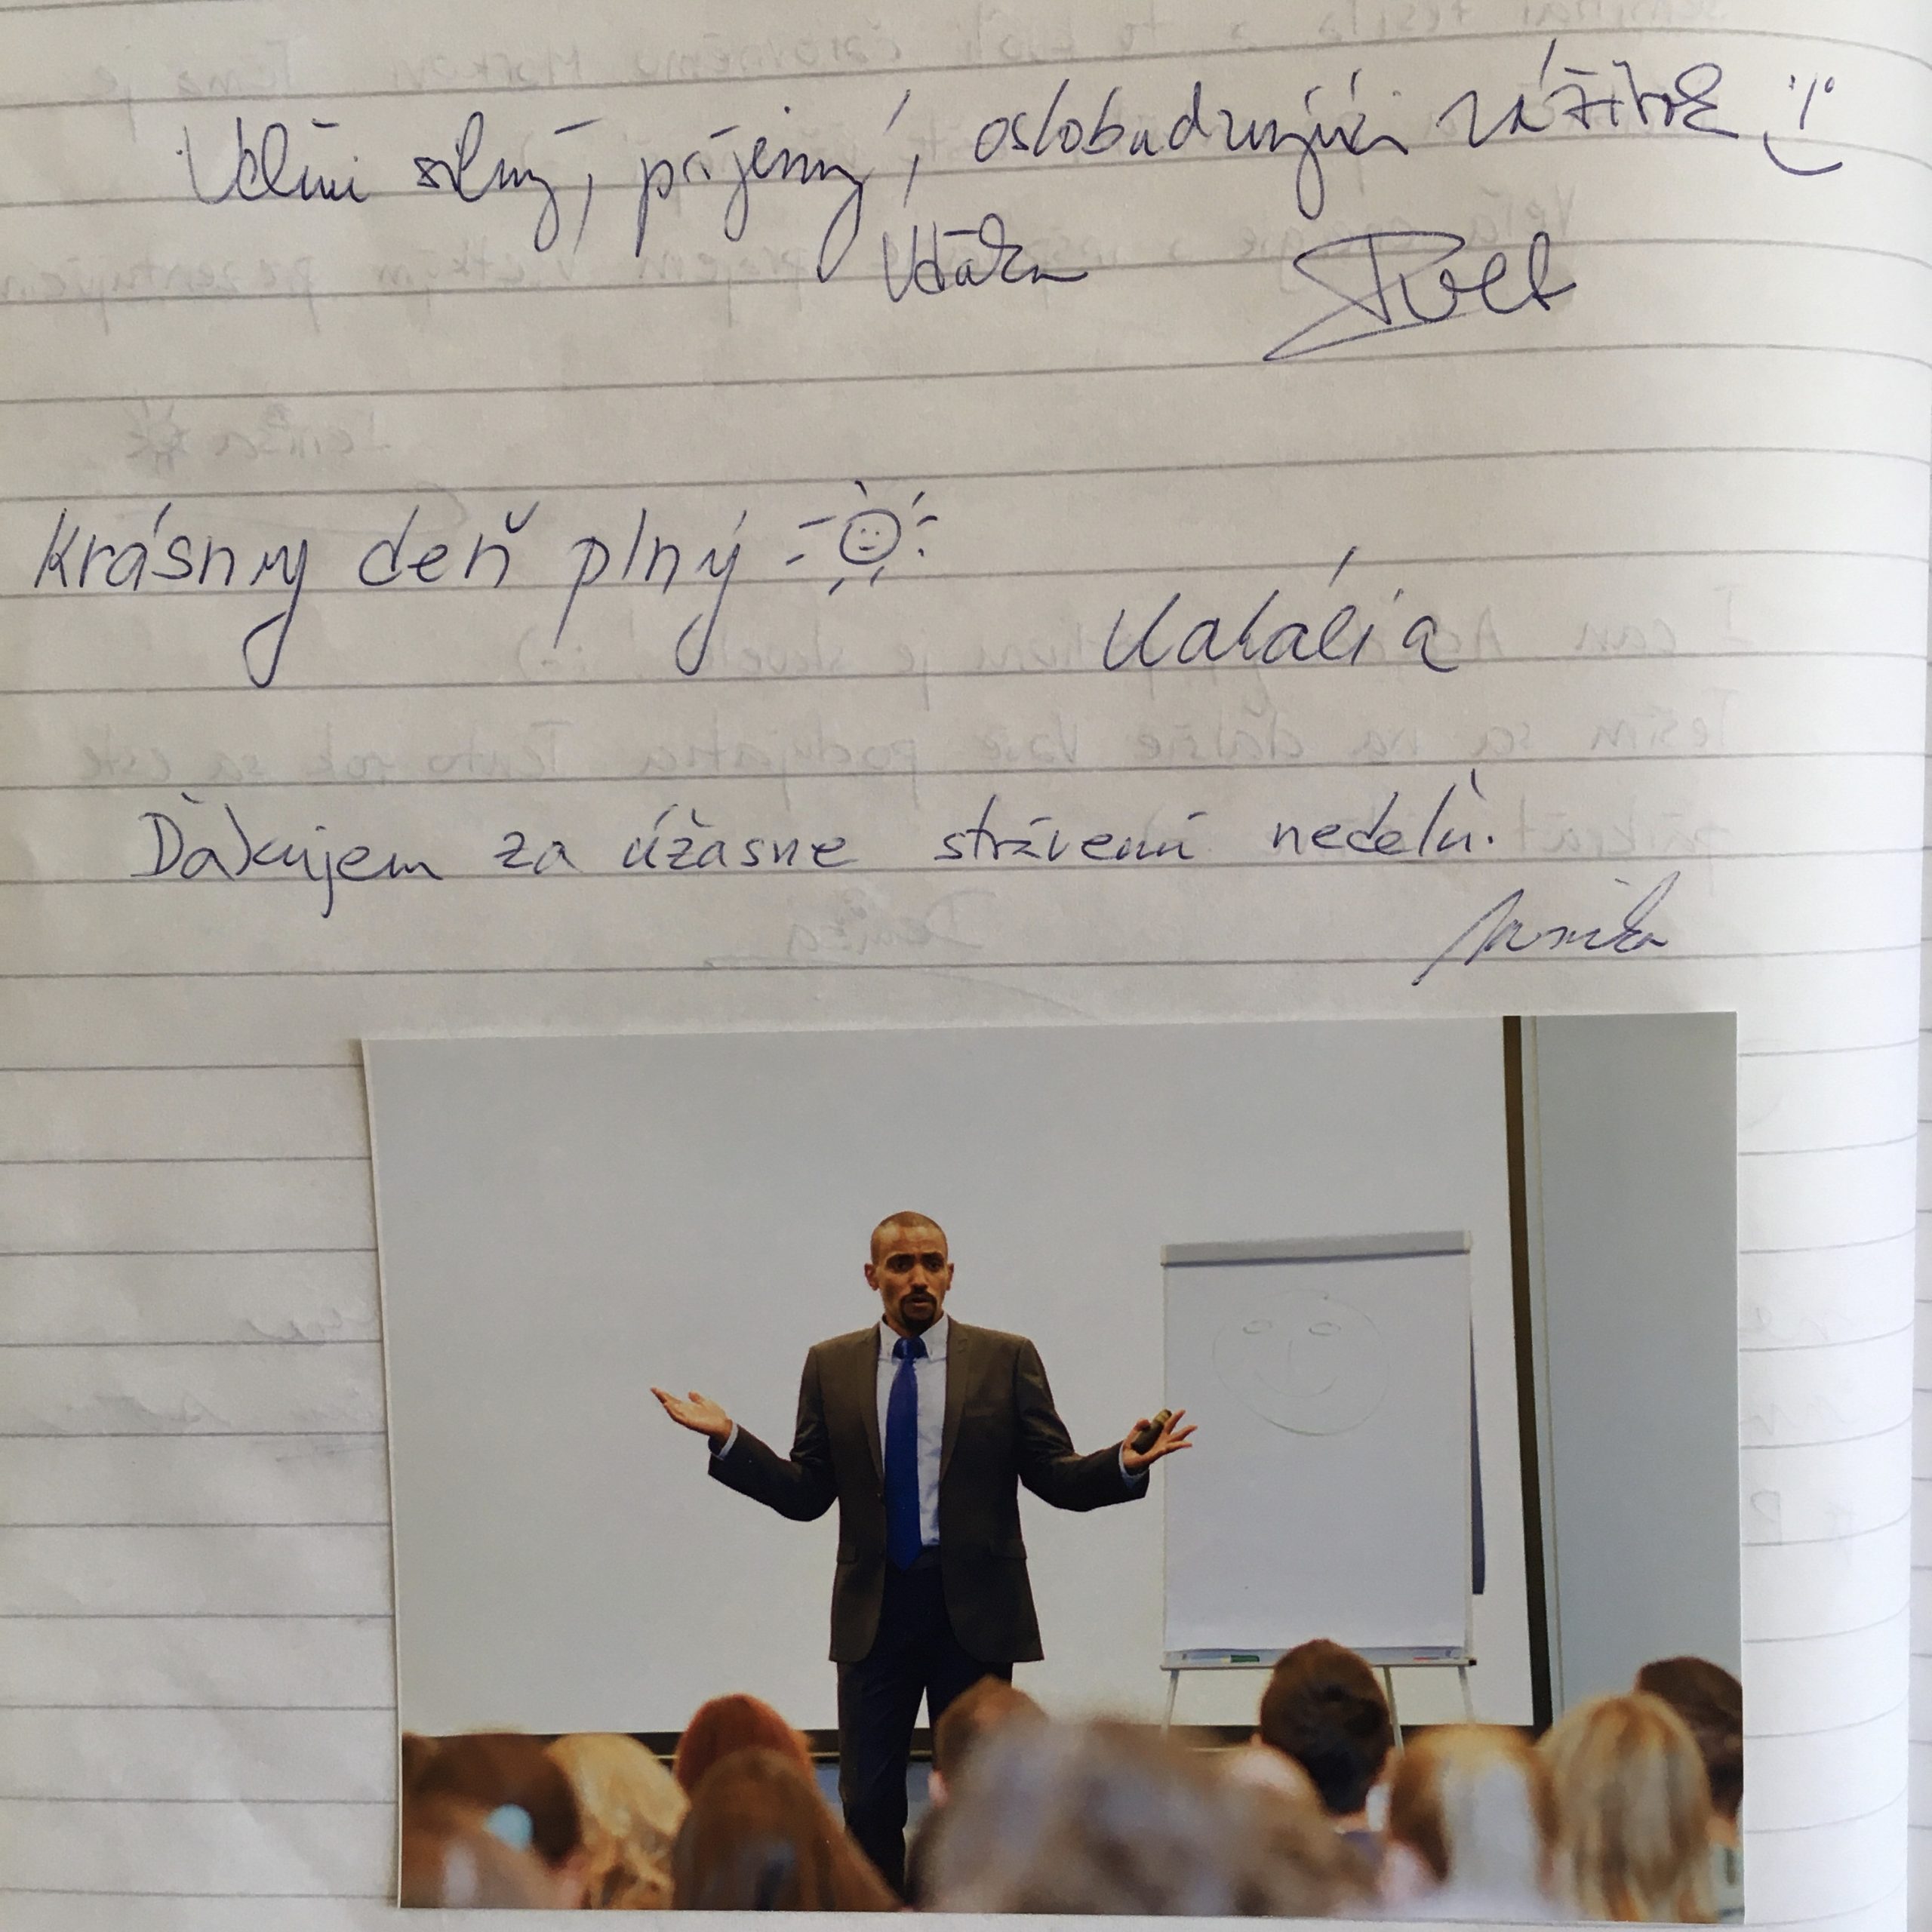 Veľmi silný, príjemný, oslobodzujúci zážitok :)
Vďaka
Krásny deň plný
Natália
Ďakujem za úžasne strávenú nedeľu.